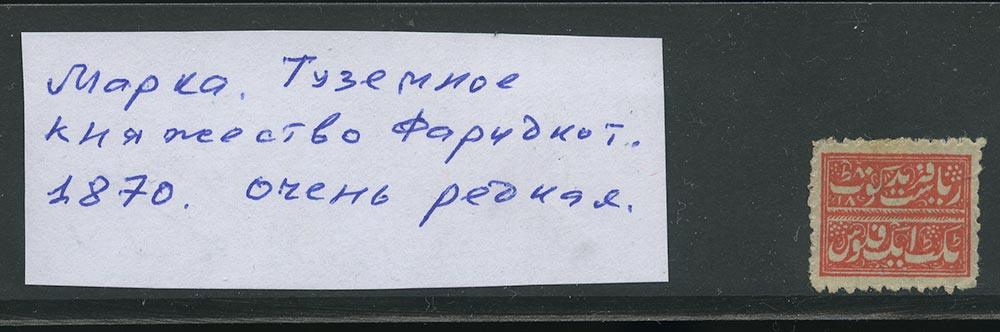 Марка. Туземное
княжество Фаридкот.
1870. очень редкая.